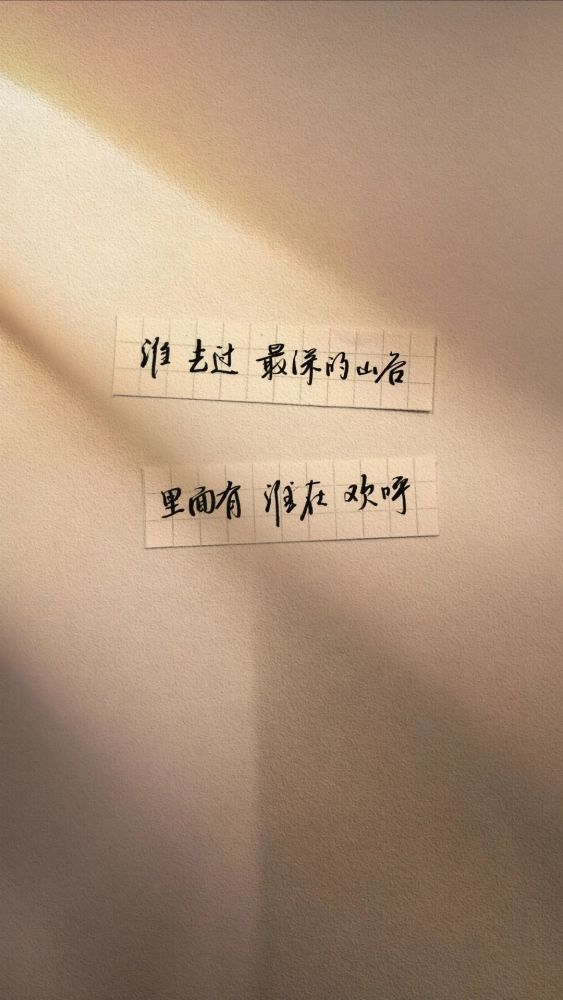 谁去过 最深的山谷
里面有 谁在 欢呼